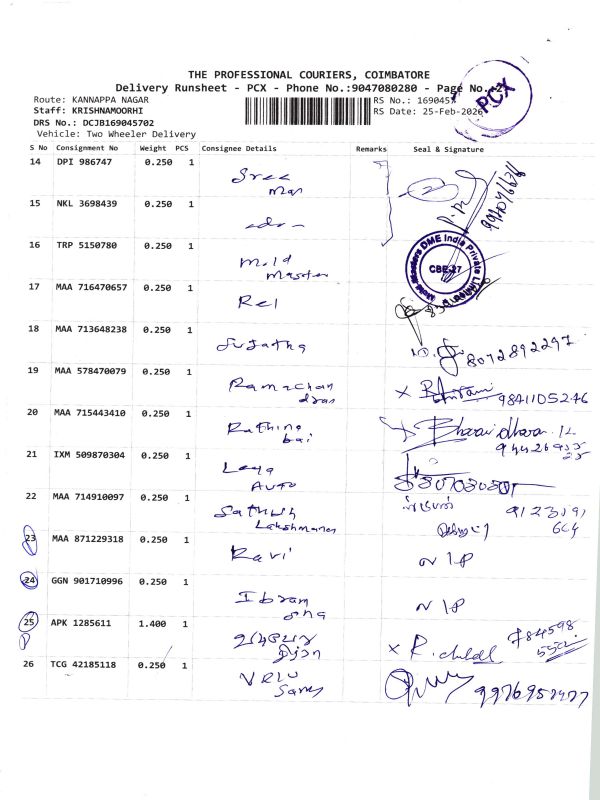 THE PROFESSIONAL COURIERS, COIMBATORE
Delivery Runsheet - PCX - Phone No.:9047080280 - Page No.:2
PCX
Route: KANNAPPA NAGAR
RS No.: 169045
Staff: KRISHNAMOORHI
RS Date: 25-Feb-2026
DRS No.: DCJB169045702
Vehicle: Two Wheeler Delivery
S No Consignment No Weight PCS Consignee Details Remarks Seal & Signature
14 DPI 986747 0.250 1 Sree
15 NKL 3698439 0.250 1
16 TRP 5150780 0.250 1 Mold Master
DME India Private Limited
CBE-27
17 MAA 716470657 0.250 1 Rel
18 MAA 713648238 0.250 1 Sujatha 8072892297
19 MAA 578470079 0.250 1 Ramachandran 9841105246
20 MAA 715443410 0.250 1 Rathina bai
21 IXM 509870304 0.250 1 Laya Auto
22 MAA 714910097 0.250 1 Sathish Lakshmanan 9123191664
23 MAA 871229318 0.250 1 Ravi N/P
24 GGN 901710996 0.250 1 N/P
25 APK 1285611 1.400 1
26 TCG 42185118 0.250 1 VRLU 9976957477